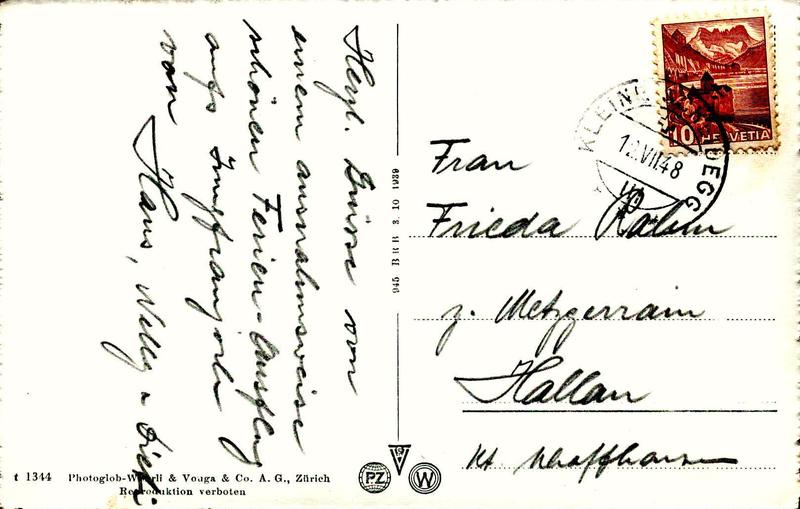 Herzl. Grüsse von
einem ausnahmsweise
schönen Ferien-Ausflug
aufs Jungfraujoch
von
Hans, Nelly u
945 BRB 3. 10 1939
KLEINE SCHEIDEGG
12.VII.48
10 HELVETIA
Frau
Frieda Rahm
z. Metzgerrain
Hallau
Kt Schaffhausen
t 1344 Photoglob-Wehrli & Vouga & Co. A. G., Zürich
Reproduktion verboten
PZ
W